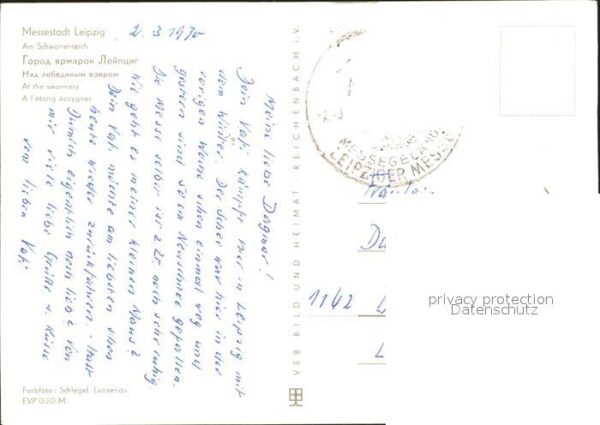 Messestadt Leipzig
Am Schwanenteich
Город ярмарок Лейпциг
Над лебединым озером
At the swannery
A l'étang aucygnes
2.3.1970
Meine liebe Dagmar!
Dein Vati kämpft hier in Leipzig mit
dem Winter. Der Schnee war hier in der
vorigen Woche schon einmal weg und
gestern sind 5 cm Neuschnee gefallen.
Die Messe selber ist z.Zt. noch sehr ruhig.
Wie geht es meiner kleinen Maus?
Dein Vati möchte am liebsten schon
heute wieder zurückfahren. - Hast
Du mich eigentlich noch lieb? Von
mir viele liebe Grüße u. Küsse
vom lieben Vati
Farbfoto: Schlegel, Lunzenau
EVP 0,20 M
VEB BILD UND HEIMAT REICHENBACH i.V.
MESSEGELÄNDE
LEIPZIGER MESSE
Fräulein
1162
privacy protection
Datenschutz